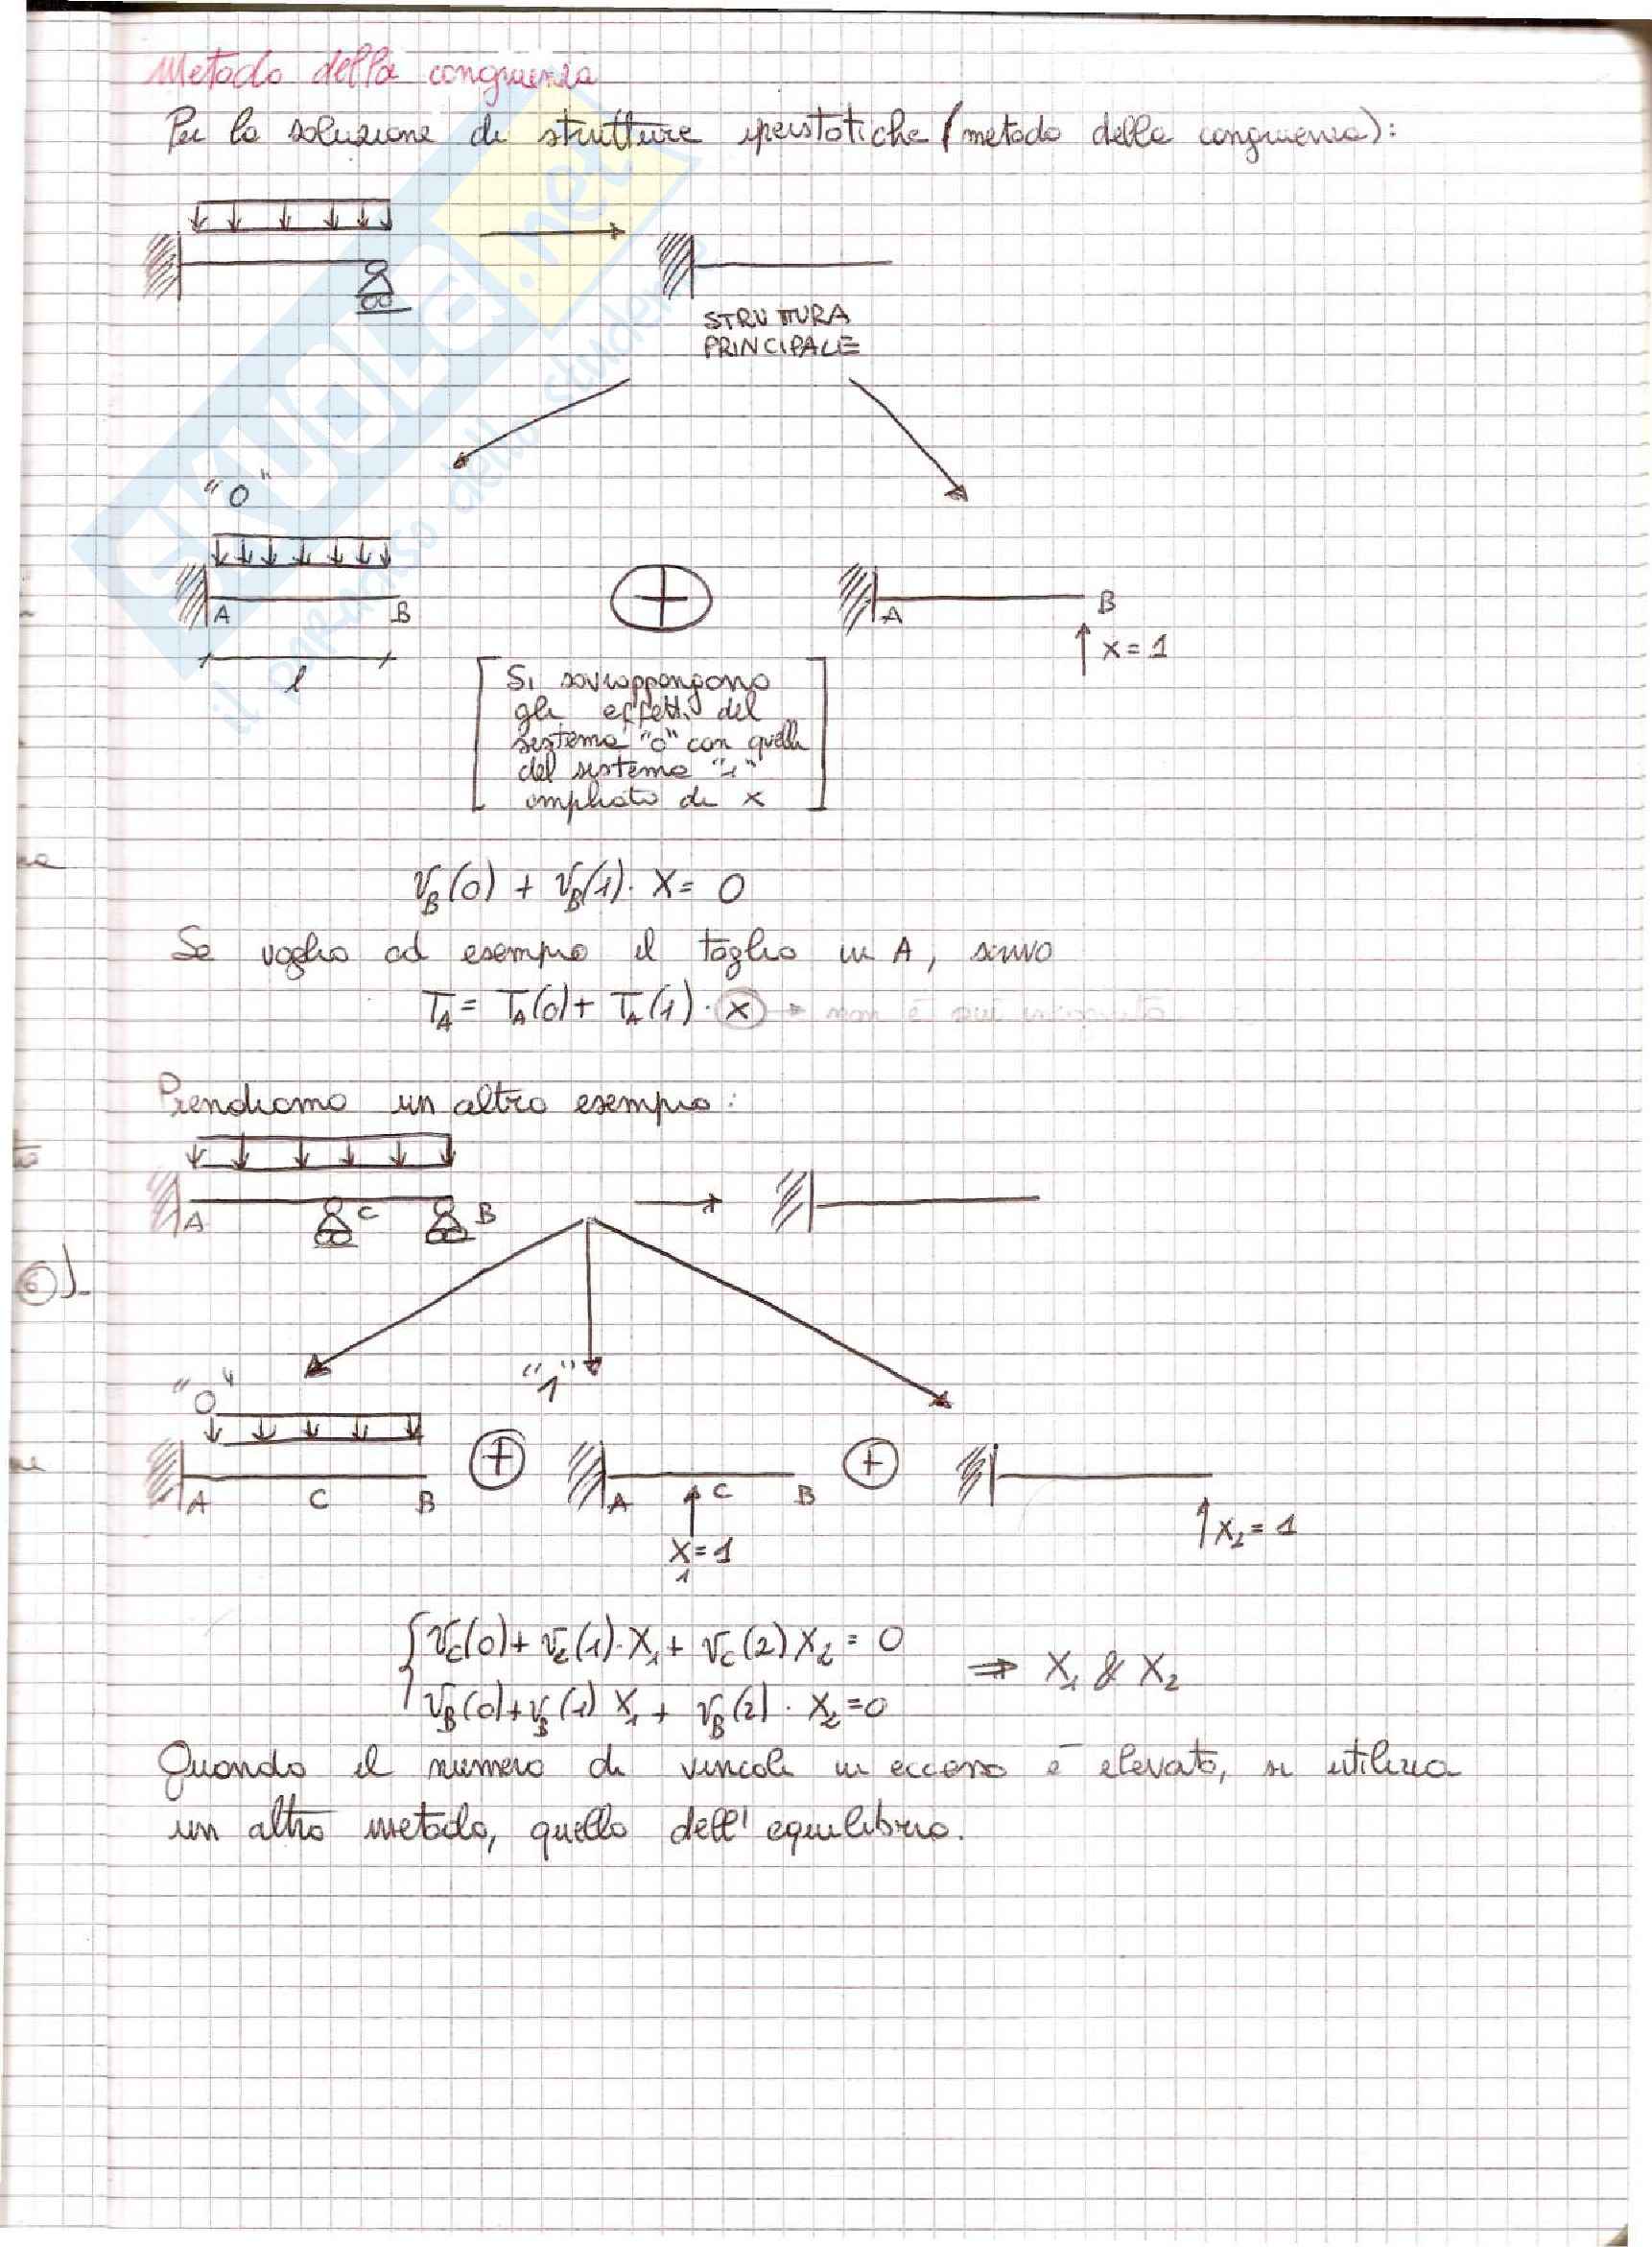 Metodo della congruenza
Per la soluzione di strutture iperstatiche (metodo della congruenza):
STRUTTURA
PRINCIPALE
"0"
A B
l
A B
x = 1
Si sovrappongono
gli effetti del
sistema "0" con quelli
del sistema "1"
ampliato di x
v_B(0) + v_B(1) · X = 0
Se voglio ad esempio il taglio in A, scrivo
T_A = T_A(0) + T_A(1) · x → non è più incognita
Prendiamo un altro esempio:
A C B
"0" "1"
A C B
A C B
X_1 = 1
X_2 = 1
v_C(0) + v_C(1) · X_1 + v_C(2) X_2 = 0
v_B(0) + v_B(1) X_1 + v_B(2) · X_2 = 0
⇒ X_1 & X_2
Quando il numero di vincoli in eccesso è elevato, si utilizza
un altro metodo, quello dell'equilibrio.
6
SKUOLA.net
il paradiso dello studente